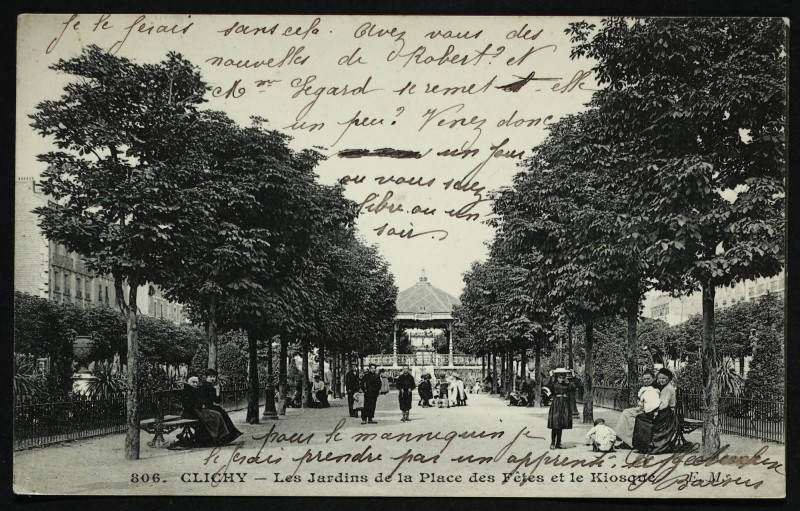 Je le ferais sans cela. Avez vous des
nouvelles de Robert? et
Mme Legard se remet - elle
un peu? Venez donc
un jour
ou vous serez
libre. ou un
soir.
pour le mannequin je
le ferais prendre par un apprenti.
806. CLICHY — Les Jardins de la Place des Fêtes et le Kiosque E. M.